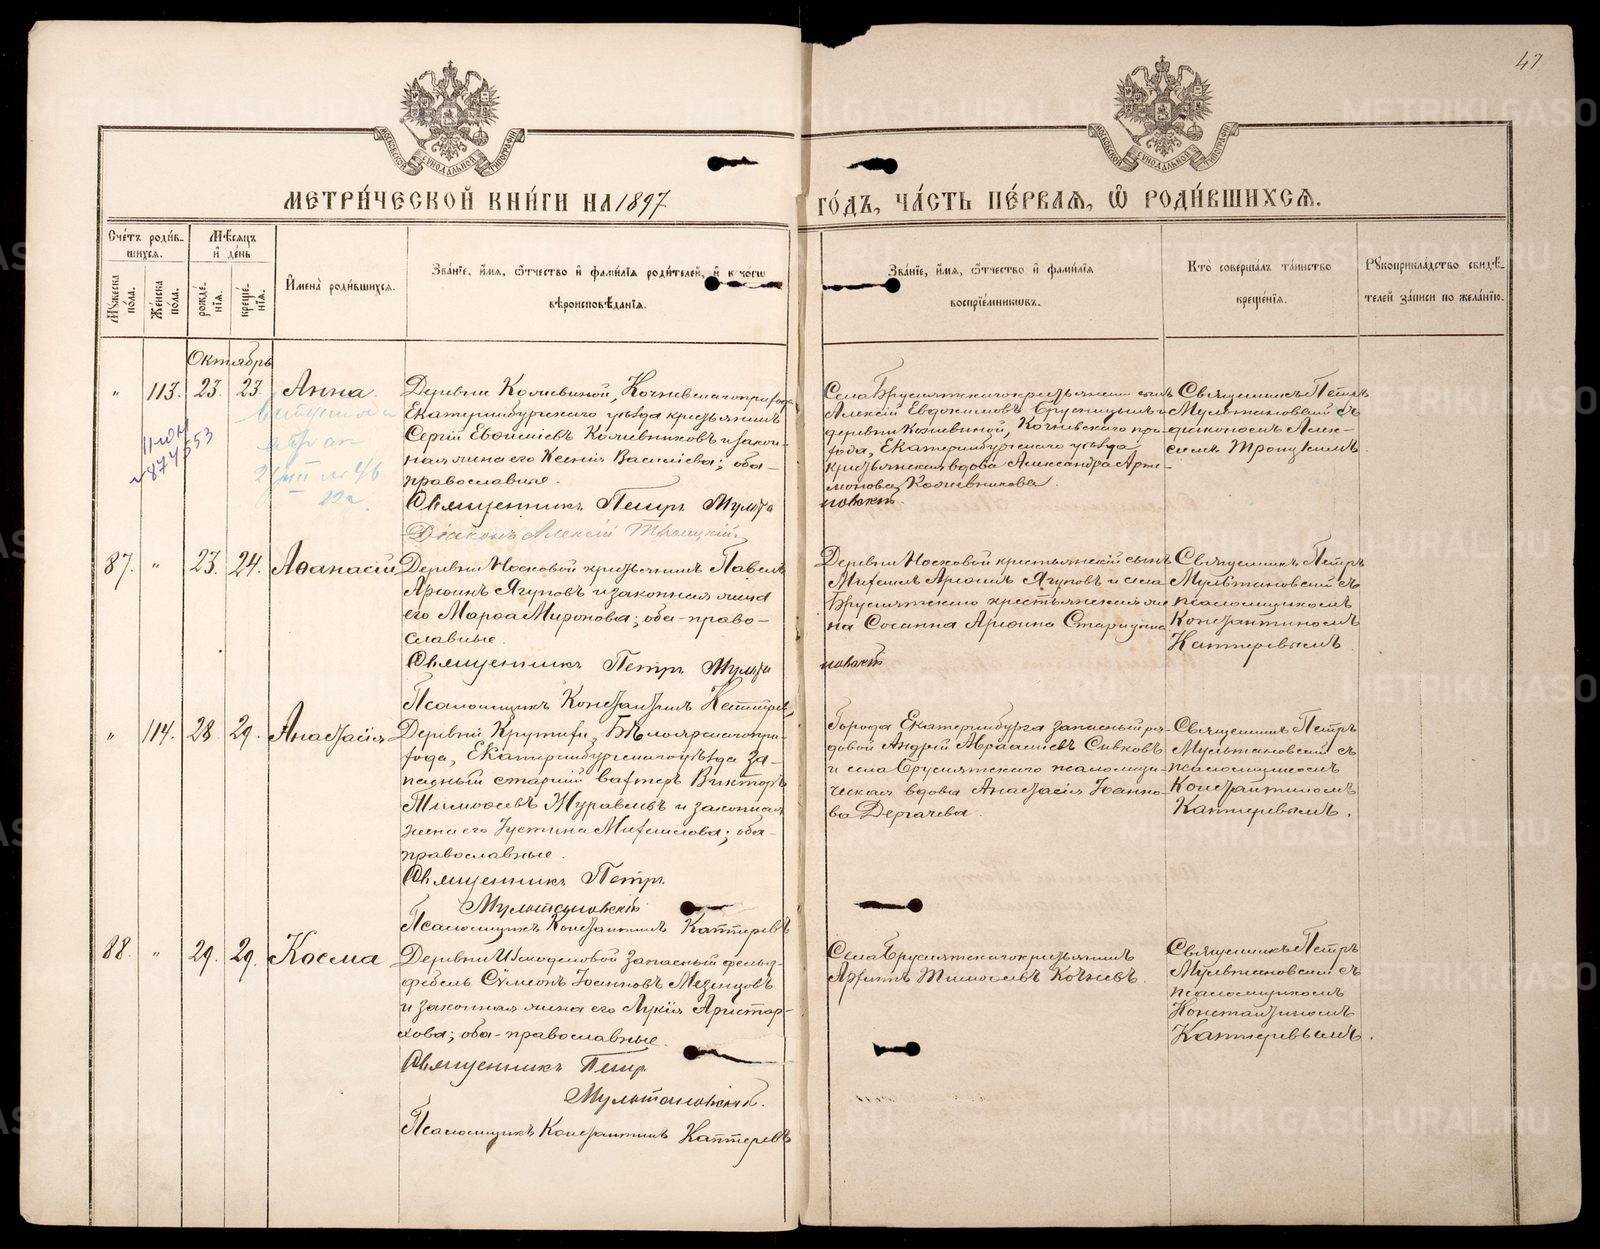 47
МЕТРИ́ЧЕСКОЙ КНИ́ГИ НА 1897 ГО́ДЪ, ЧА́СТЬ ПЕ́РВАЯ, Ѡ РОДИ́ВШИХСЯ.
Сче́тъ роди́в-
шихся.
Мѣ́сяцъ
и де́нь
Му́жеска
по́ла.
Же́нска
по́ла.
рожде́-
нїя.
креще́-
нїя.
Имена̀ роди́вшихся.
Зва́нїе, и́мя, ѻ́тчество и фами́лїя роди́телей, и како́гѡ
вѣроисповѣ́данїя.
Зва́нїе, и́мя, ѻ́тчество и фами́лїя
воспрїе́мникѡвъ.
Кто̀ соверша́лъ та́инство
креще́нїя.
Рукоприкла́дство свидѣ́-
телей за́писи по жела́нїю.
Октябрь
" 113. 23. 23. Анна
Деревни Колювиной, Кочневскаго прихода
Екатеринбургскаго уѣзда крестьянинъ
Сергій Евѳиміевъ и закон-
ная жена его Ксенія Василіева; оба-
православные.
Священникъ Петръ Мульта
новскій
Діаконъ Алексій Троицкій
Села Брусянскаго крестьянскій сынъ
Алексій Евдокимовъ и
деревни Колювиной, Кочневскаго при-
хода, Екатеринбургскаго уѣзда
крестьянская вдова Александра Арте-
монова
Священникъ Петръ
Мультановскій съ
діакономъ Алек-
сіемъ Троицкимъ.
87. " 23. 24. Аѳанасій
Деревни Носковой крестьянинъ Павелъ
Ягуповъ и законная жена
его Марѳа Миронова; оба-право-
славные.
Священникъ Петръ Мульта
новскій
Псаломщикъ Константинъ Каттеревъ
Деревни Носковой крестьянскій сынъ
Ягуповъ и села
Брусянскаго крестьянская же
на
Священникъ Петръ
Мультановскій съ
псаломщикомъ
Константиномъ
Каттеревымъ.
" 114. 28. 29. Анастасія
Деревни Крутихи, Бѣлоярскаго при-
хода, Екатеринбургскаго уѣзда за-
пасный старшій вахтеръ Викторъ
Тимоѳеевъ Журавлевъ и законная
жена его Іустина Михаилова; оба-
православные.
Священникъ Петръ
Мультановскій
Псаломщикъ Константинъ Каттеревъ
Города Екатеринбурга запасный ря-
довой Андрей Авраамiевъ Сивковъ
и села Брусянскаго псаломщи-
ческая вдова Анастасія Іоанно-
ва Дергачева.
Священникъ Петръ
Мультановскій съ
псаломщикомъ
Константиномъ
Каттеревымъ.
88. " 29. 29. Косма
Деревни запасный фельд-
фебель Сѵмеонъ Іоанновъ Мезенцовъ
и законная жена его Лукія Аристар-
хова; оба-православные.
Священникъ Петръ
Мультановскій.
Псаломщикъ Константинъ Каттеревъ
Села Брусянскаго крестьянинъ
Тимоѳеевъ Кочневъ.
Священникъ Петръ
Мультановскій съ
псаломщикомъ
Константиномъ
Каттеревымъ.
METRIKI.GASO-URAL.RU